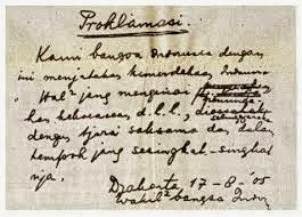 Proklamasi.
Kami bangsa Indonesia dengan
ini menjatakan kemerdekaan Indonesia
Hal² jang mengenai
kekoeasaan d.l.l.,
dengan tjara saksama dan dalam
tempoh jang sesingkat-singkat
nja.
Djakarta, 17-8-'05
Wakil² bangsa Indon